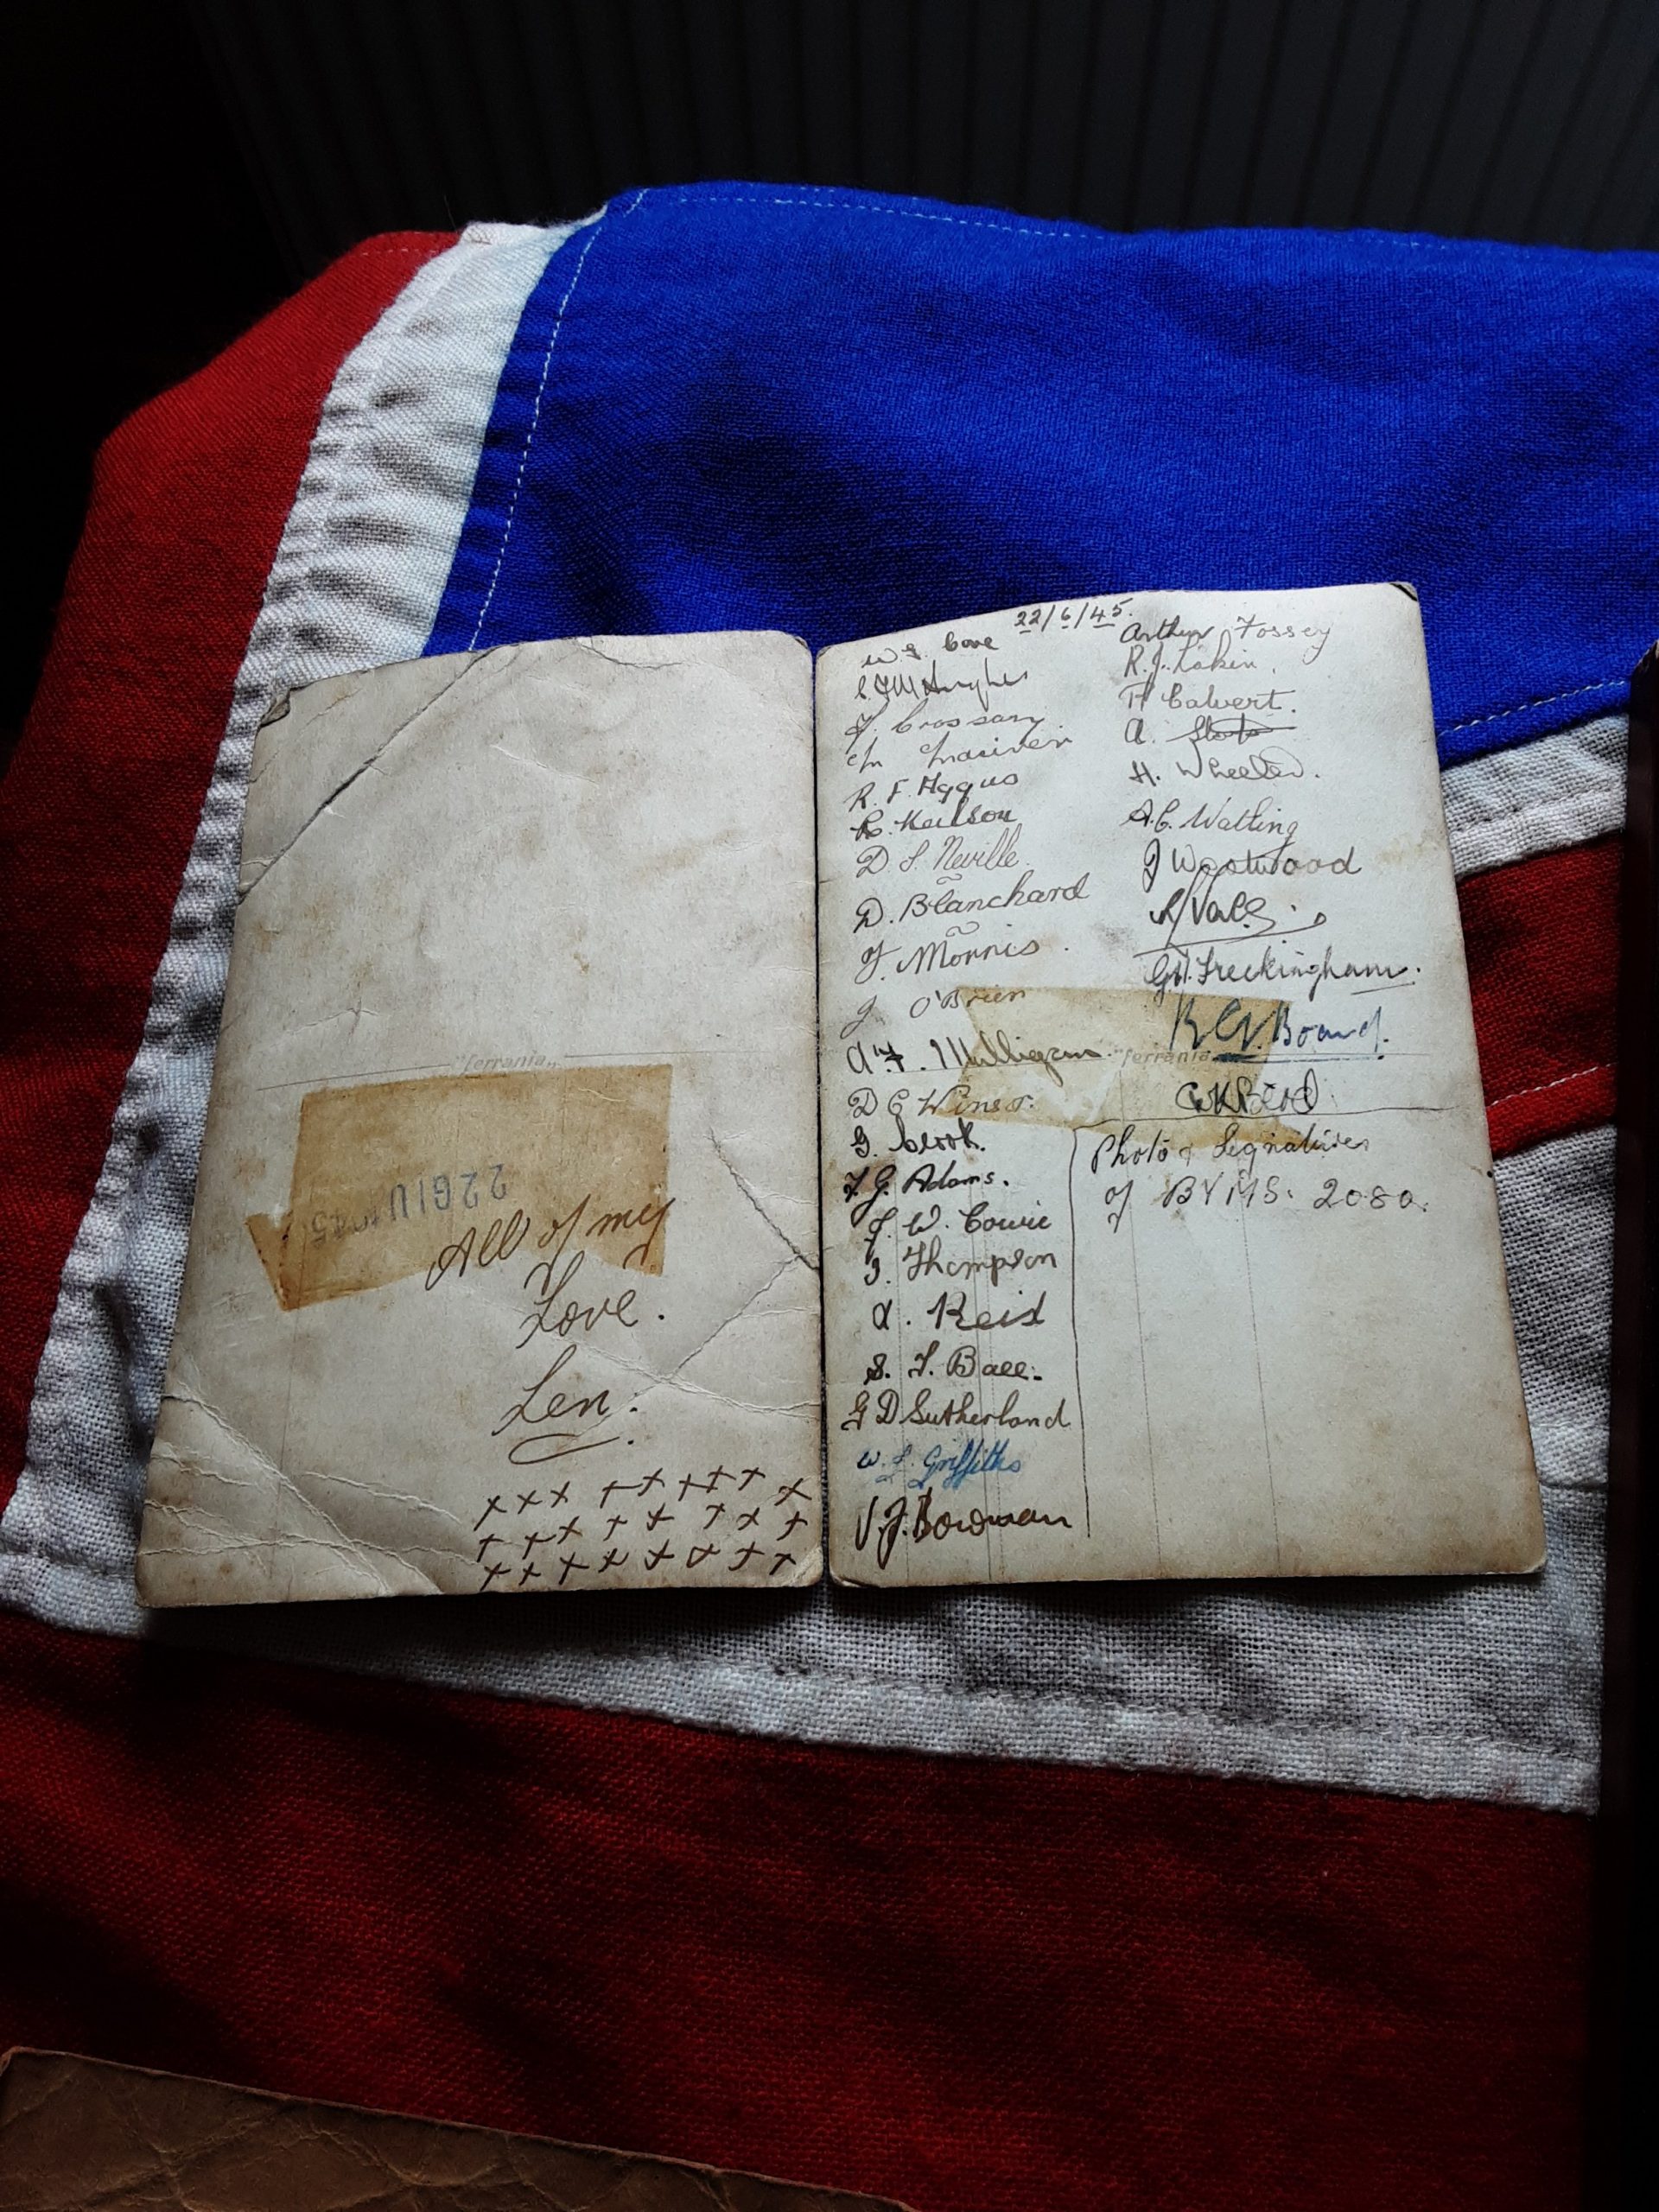 "ferrania"
22 GIU 1945
All of my
Love.
Len.
x x x x x x x x x x
x x x x x x x x
x x x x x x x x
22/6/45.
W. G. Cove
Hughes
J. Crossany.
R. F. Aggus
R. Neilson
D. S. Neville.
D. Blanchard
J. Morris.
J. O'Brien
A. F. Mulligan.
D E Winsor.
G. Cook.
F. G. Adams.
J. W. Cowie
J. Thompson
A. Reid
S. F. Ball.
G D Sutherland
W. L. Griffiths
V. J. Bowman
Arthur Fossey
R. J. Lakin.
H Calvert.
A.
H. Wheeler.
A. C. Watling
J Westwood
Vale.
G. H. Freckingham.
R G. Board.
"ferrania"
Bird
Photo & Signatures
of B.Y.M.S. 2080.